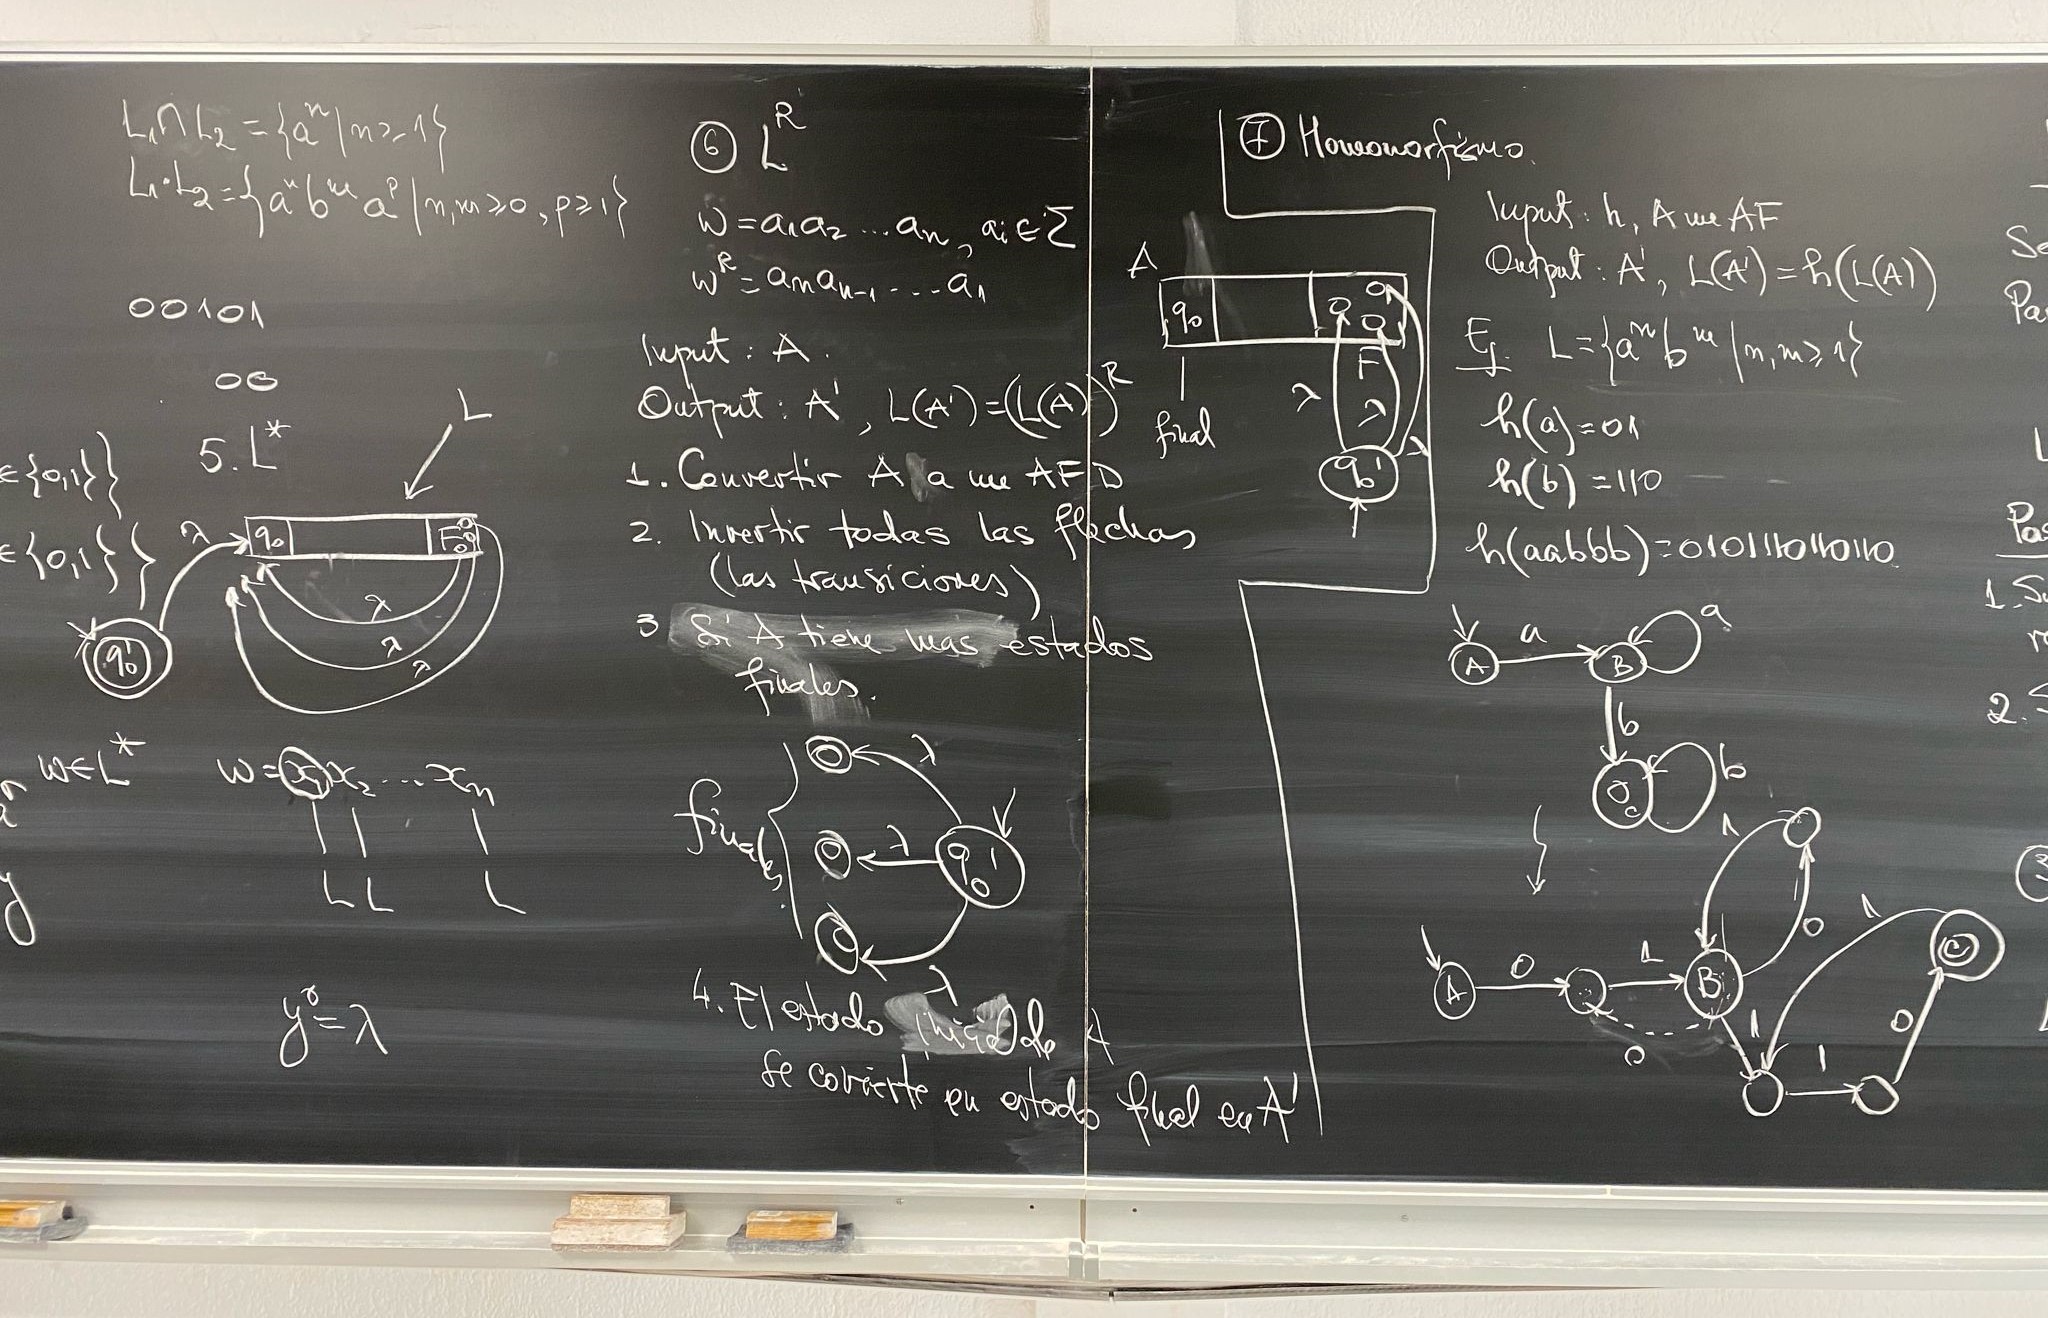 L₁∩L₂ = {aⁿ | n ≥ 1}
L₁·L₂ = {aⁿbᵐaᵖ | n,m ≥ 0, p ≥ 1}
00101
00
∈{0,1}}
∈{0,1}}
5. L*
L
λ
q₀
F
λ
λ
λ
q₀'
w∈L*
w = x₁x₂ ... xₙ
L L L
y⁰ = λ
⑥ Lᴿ
w = a₁a₂ ... aₙ, aᵢ ∈ Σ
wᴿ = aₙaₙ₋₁ ... a₁
Input: A.
Output: A', L(A') = (L(A))ᴿ
1. Convertir A a un AFD
2. Invertir todas las flechas
(las transiciones)
3 Si A tiene mas estados
finales.
finales
λ
λ
λ
q₀'
4. El estado inicial de A
se covierte en estado final en A'
A
q₀
F
final
λ
λ
λ
q₀'
⑦ Homomorfismo.
Input: h, A un AF
Output: A', L(A') = h(L(A))
Ej. L = {aⁿbᵐ | n,m ≥ 1}
h(a) = 01
h(b) = 110
h(aabbb) = 0101110110110
A a B a
b
C b
A 0 1 B 0 1
0
1 1 0 C 1
Se
Pa
Pas
1. Su
2. S
3